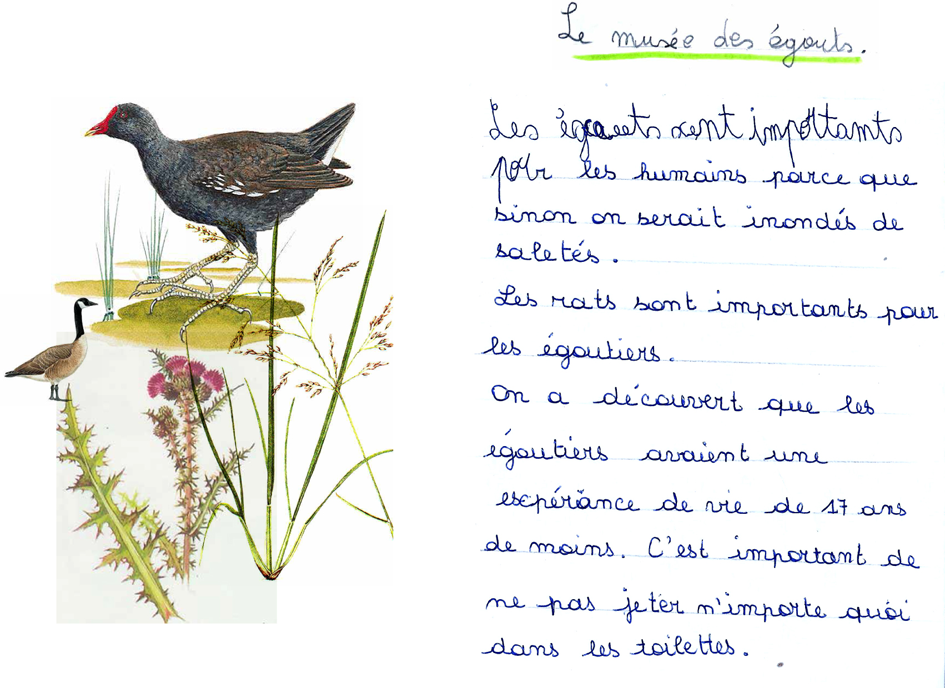 Le musée des égouts.
Les égouts sont importants
pour les humains parce que
sinon on serait inondés de
saletés.
Les rats sont importants pour
les égoutiers.
On a découvert que les
égoutiers avaient une
espérance de vie de 17 ans
de moins. C'est important de
ne pas jeter n'importe quoi
dans les toilettes.